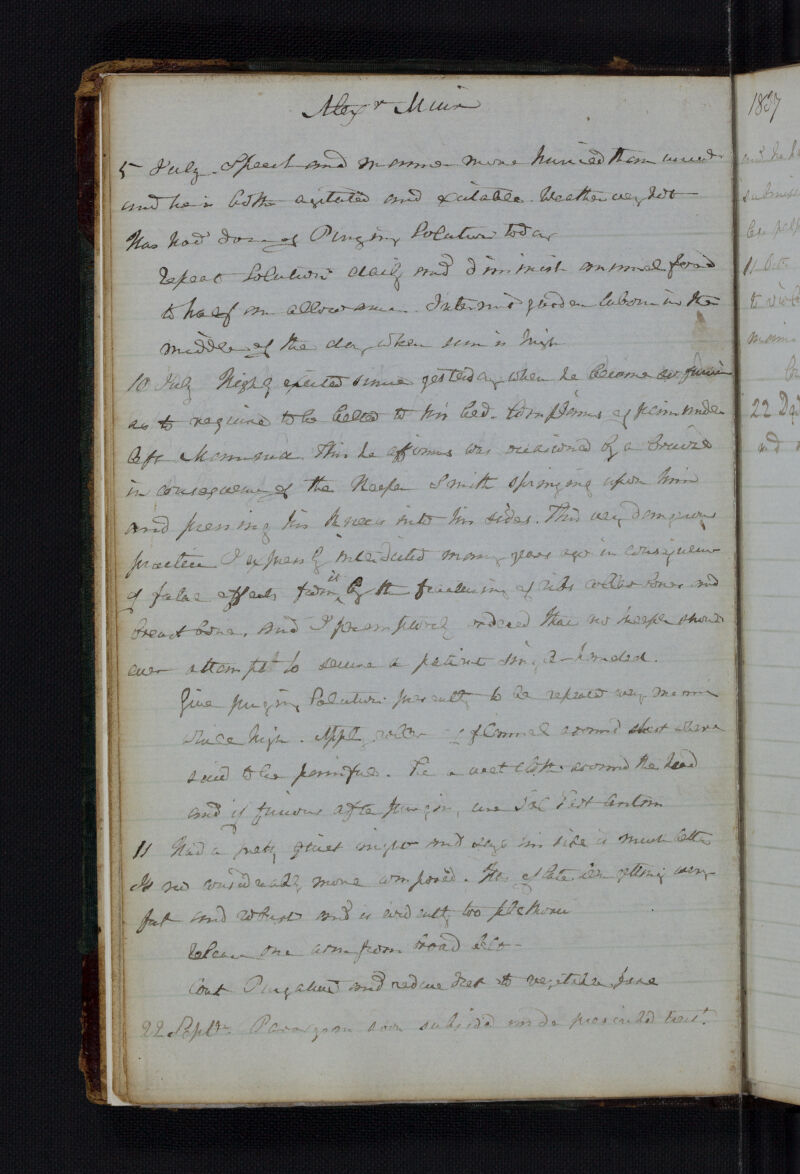 Alexr Muir
5 July. Speech and manner more hurried than usual
and he is both agitated and excitable. Weather very hot
Has had dose of Purging Solution today
Repeat Solution daily and diminish animal food
to half an allowance. Intermit garden labour in the
middle of the day when sun is high
10 July Highly excited since yesterday when he became so furious
as to require to be belted to his bed. Complains of pain under
left Mamma. This he affirms was occasioned by a bruize
in consequence of the Keeper Smith springing upon him
and pressing his knees into his sides. This very dangerous
practice I expressly interdicted many years ago in consequence
of fatal effects from it by the fracturing of ribs collar bones and
breast bone. And I peremptorily ordered that no keeper should
ever attempt to secure a patient single-handed.
Give purging Solution presently to be repeated every morning
while high. Apply roller of flannel around chest where
said to be painful. Tie a wet cloth around the head
and if furious after purging, use
11 Had a pretty quiet night and says his side is much better
Is now considerably more composed. Has of late been getting very
fat and robust and is evidently too plethoric
Release one arm from broad belt
Cont Purgative and reduce diet to vegetable fare
22 Septr. Paroxysm soon subsided under prescribed treatt.
1837
11 Octr
22